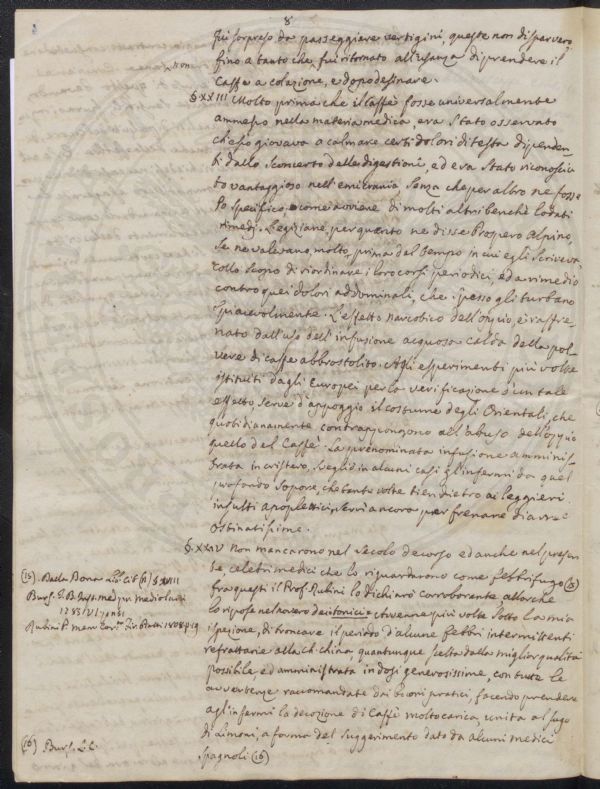 8
fui sorpreso da passeggiere vertigini, queste non disparvero
fino a tanto che non fui ritornato all'usanza di prendere il
Caffe a colazione, e dopo desinare.
§ XXIII Molto prima che il Caffè fosse universalmente
ammesso nella materia medica, era stato osservato
ch'esso giovava a calmare certi dolori di testa dipenden-
ti dallo sconcerto delle digestioni, ed era stato riconosciu-
to vantaggioso nell'emicrania, senza che per altro ne fosse
lo specifico, come avviene di molti altri benchè lodati
rimedj. Le egiziane, per quanto ne disse Prospero Alpino,
se ne valevano molto prima del tempo in cui egli scriveva,
collo scopo di riordinare i loro corsi periodici, ed a rimedio
contro quei dolori addominali, che spesso gli turbano
spiacevolmente. L'effetto narcotico dell'oppio, è raffre-
nato dall'uso dell'infusione acquosa calda della pol-
vere di caffe abbrostolito. Agli esperimenti più volte
istituiti dagli Europei per la verificazione d'un tale
effetto, serve d'appoggio il costume degli Orientali, che
quotidianamente contrappongono all'abuso dell'oppio
quello del Caffè. La prenominata infusione amminis-
trata in cristero, svegliò in alcuni casi gl'infermi da quel
profondo sopore, che tante volte tien dietro ai leggieri
insulti apopletici, servì ancora per frenare diarree
ostinatissime.
§. XXIV Non mancarono nel secolo decorso ed anche nel presen-
te celebri medici che lo riguardarono come febbrifugo (15)
Fra questi il Prof. Rubini lo dichiarò corroborante allorche
lo ripose nel novero dei tonici
ispezione, di troncare il periodo d'alcune febbri intermittenti
refrattarie alla chi china, quantunque scelta dalla miglior qualità
possibile ed amministrata in dosi generosissime, con tutte le
avvertenze raccomandate dai buoni pratici, facendo prendere
agl'infermi la decozione di Caffè molto carica, unita al sugo
di Limoni, a forma del suggerimento dato da alcuni medici
spagnoli (16)
(15). Dalla Bona § XVIII
Burs. I. B. Inst. med. pr. Mediolani
1783
Rubini P. 1808
(16) Burs. l. c.